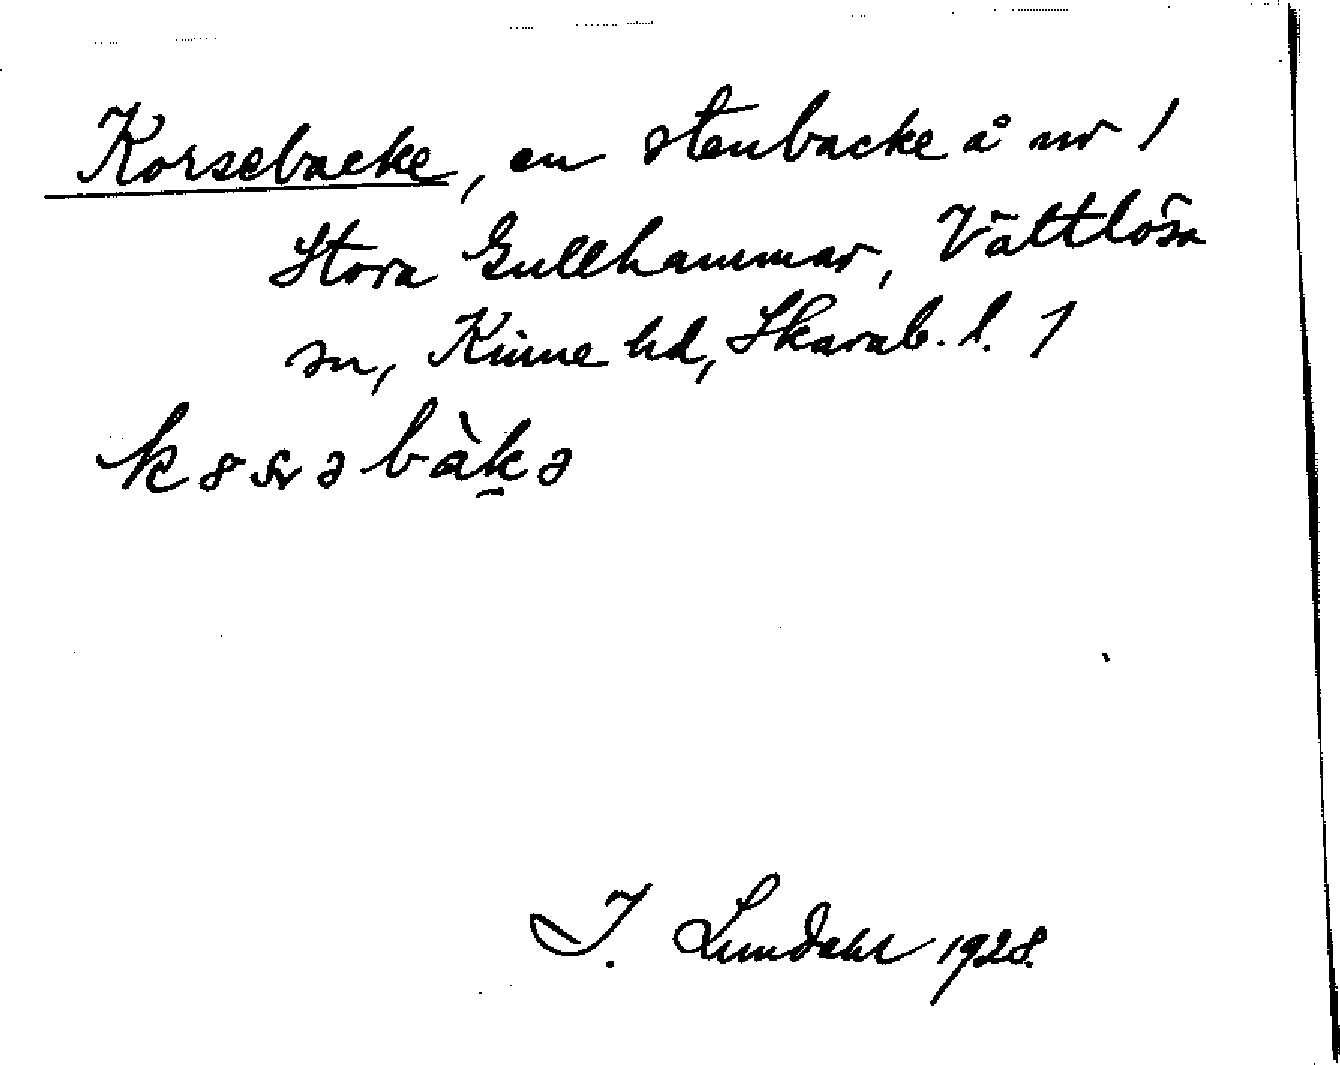 Korsebacke, en stenbacke å nr 1
Stora Gullhammar, Vättlösa
sn, Kinne hd, Skarab. l. 1
bàkə
I. Lundahl 1928.